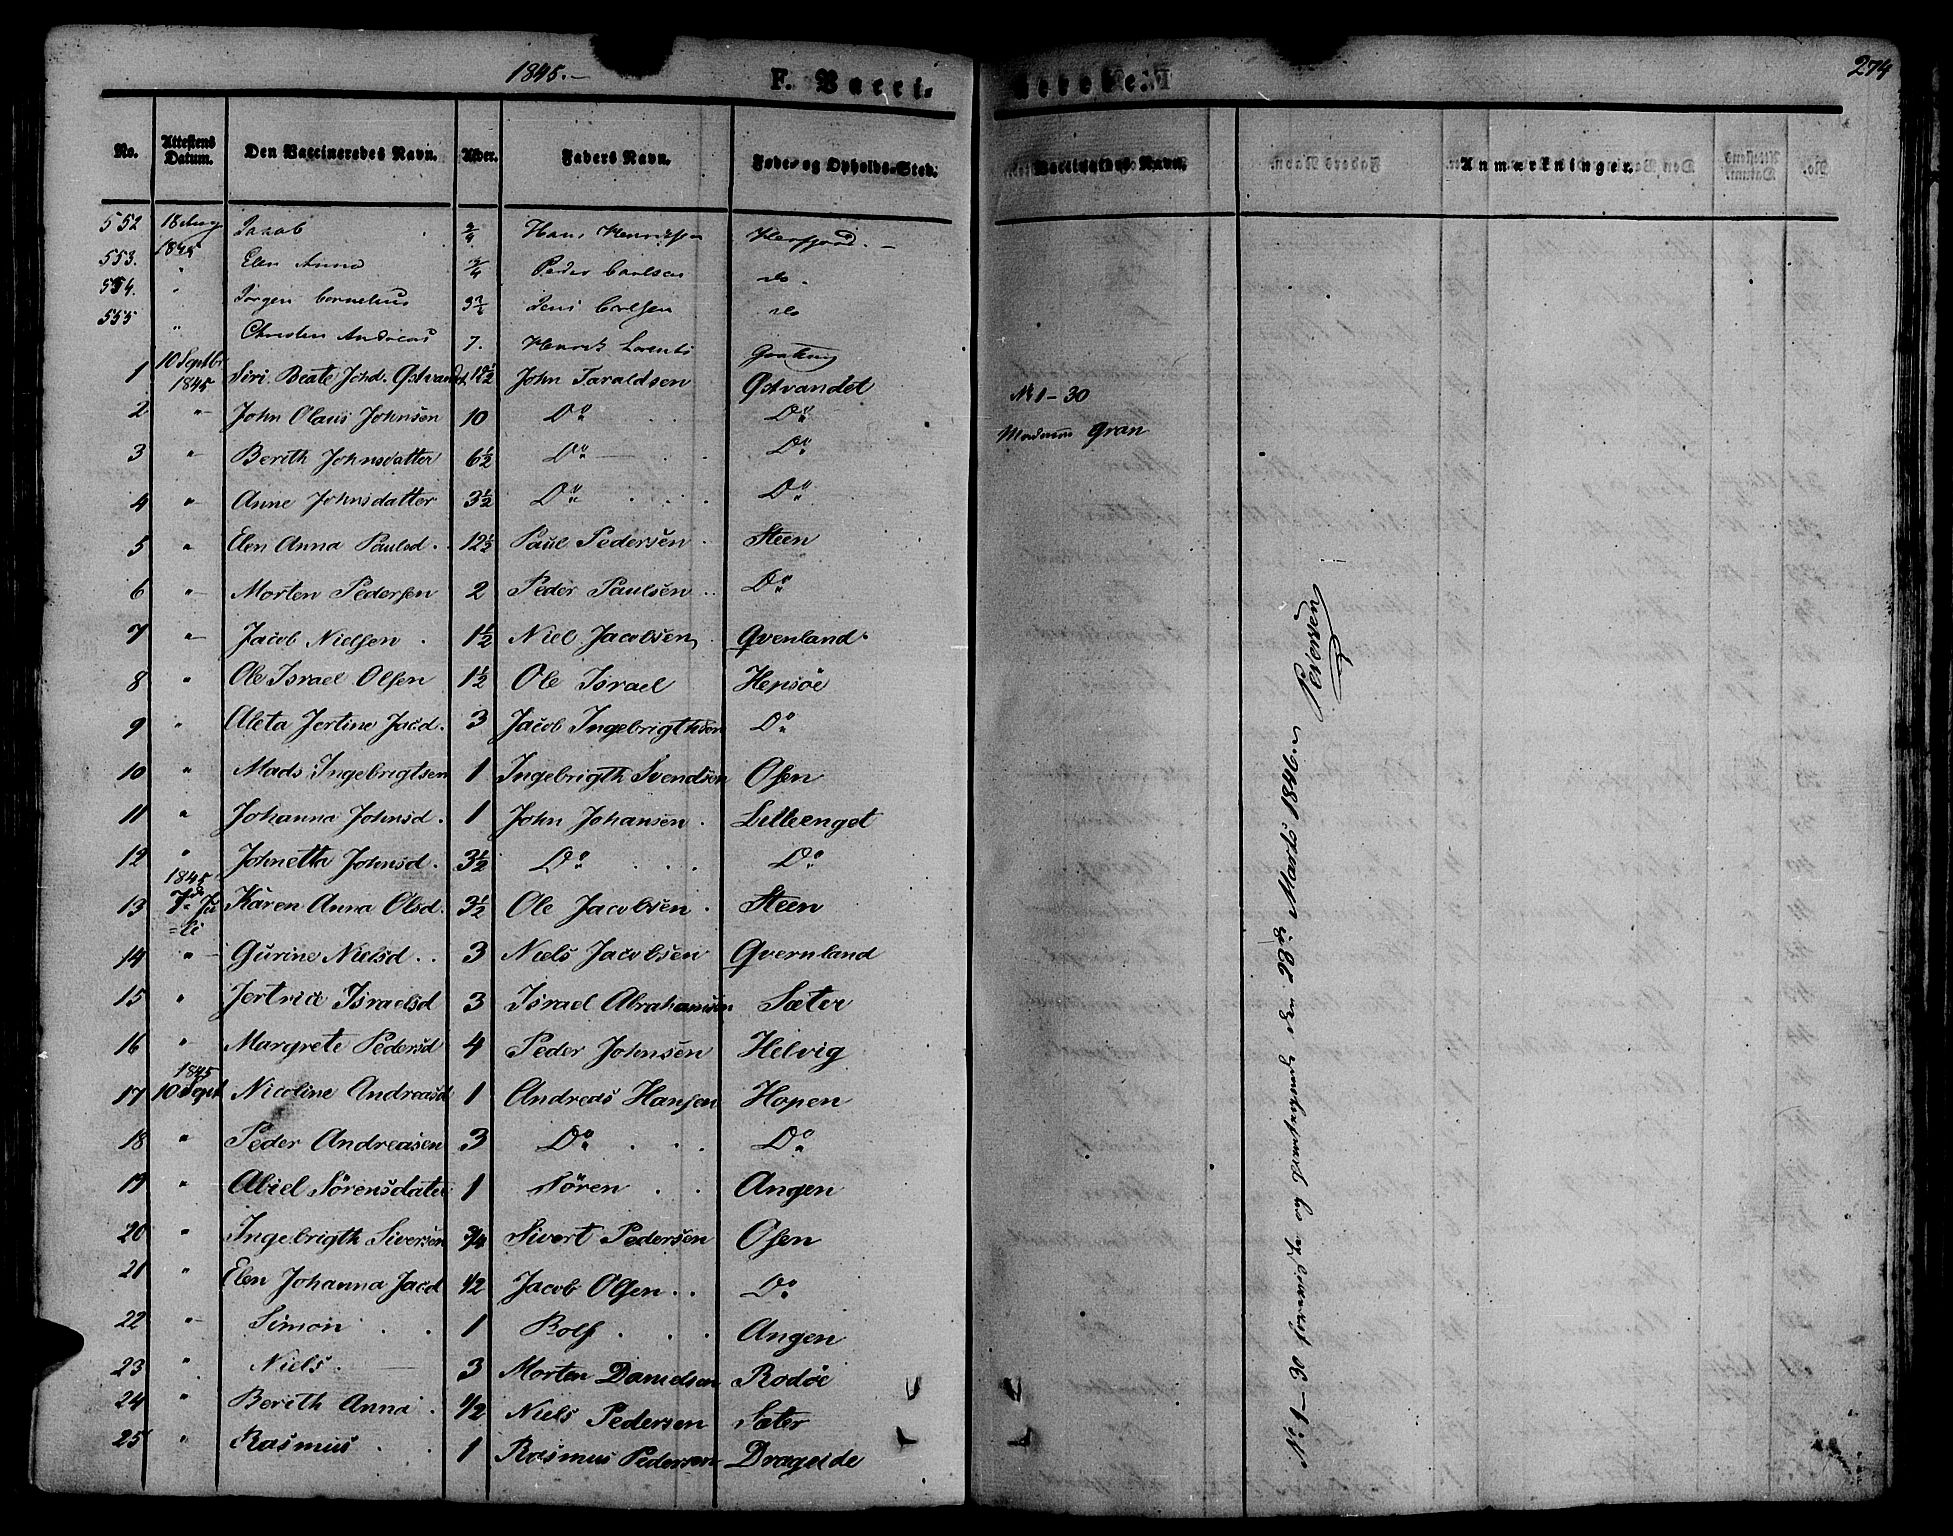 1845.-
F. Vacci-
nerede.
274
No. Attestens Datum. Den Vaccineredes Navn. Alder. Faders Navn. Føde- og Opholds-Sted. Vaccinators Navn. Anmærkninger.
552 18 Aug 1845 Jacob 3/4 Hans Henriksen
553. " Elen Anna 3/4 Peder Carlsen do.
554. " Jørgen Cornelius Jens Carlsen do
555 " Christen Andreas 7. Henrik Lorents
1 10 Septbr 1845 Siri Beate Johd. Østvandet 12½ John Taraldsen Østvandet
2 " John Olaus Johnsen 10 Do Do
3 " Berith Johnsdatter 6½ Do Do
4 " Anne Johnsdatter 3½ Do Do
5 " Elen Anna Paulsd. 12½ Paul Pedersen Steen
6 " Morten Pedersen 2 Peder Paulsen Do
7 " Jacob Nielsen 1½ Niel Jacobsen Qvenland
8 " Ole Israel Olsen 1½ Ole Israel Hepsøe
9 " Aleta Jertine Jacd. 3 Jacob Ingebrigthsen Do
10 " Mads Ingebrigtsen 1 Ingebrigth Svendsen Osen
11 " Johanna Johnsd. 1 John Johansen Lilleenget
12 " Johnetta Johnsd. 3½ Do Do
13 1845 7de Juli Karen Anna Olsd. 3½ Ole Jacobsen Steen
14 " Gurine Nielsd. 3 Niels Jacobsen Qvernland
15 " Jertrice Israelsd 3 Israel Abrahamsen Sæter
16 " Margrete Pedersd 4 Peder Johnsen Helvig
17 1845 10 Sept Nicoline Andreasd 1 Andreas Hansen Hopen
18 " Peder Andreasen 3 Do Do
19 " Abiel Sørensdater 1 Søren Angen
20 " Ingebrigth Siversen 3/4 Sivert Pedersen Osen
21 " Elen Johanna Jacd 1/2 Jacob Olsen Do
22 " Simon 1 Rolf Angen
23 " Niels 3 Morten Danielsen Rodøe
24 " Berith Anna 1/2 Niels Pedersen Sæter
25 " Rasmus 1 Rasmus Pedersen Drageide
No 1-30
Madame Gran
No 1-30 og Drach den 28de Marts 1846 Pedersen